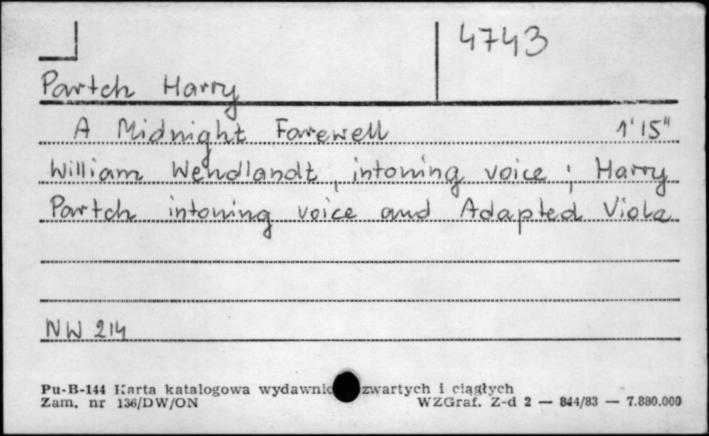 4743
Partch Harry
A Midnight Farewell 1'15"
William Wendlandt, intoning voice; Harry
Partch intoning voice and Adapted Viola
NW 214
Pu-B-144 Karta katalogowa wydawnic zwartych i ciągłych
Zam. nr 136/DW/ON WZGraf. Z-d 2 — 844/83 — 7.880.000